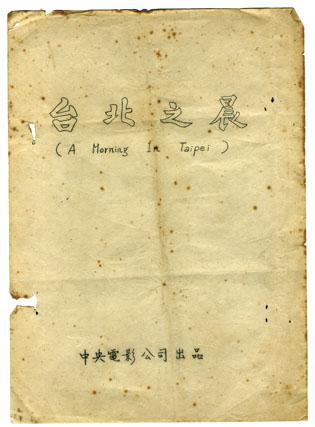 台北之晨
(A Morning In Taipei)
中央電影公司出品